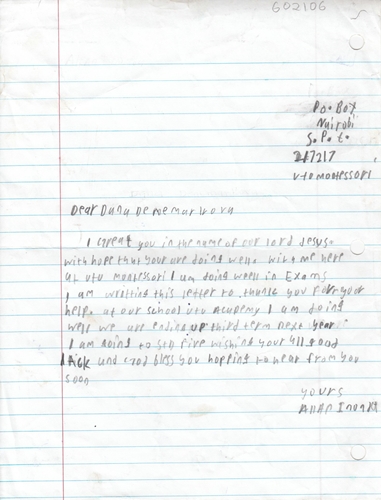 602106
P.o. Box
Nairobi
S.P.t.
217217
uto montessori
Dear Dana
I Great you in the name of our lord Jesus.
with hope that your are doing well. with me here
at uto montessori I am doing well in Exams
I am writing this letter to thank you for your
help. at our school uto Academy I am doing
well we are ending up third term next year
I am going to std five wishing your all good
lack and God bless you hopping to hear from you
soon
yours
Allan